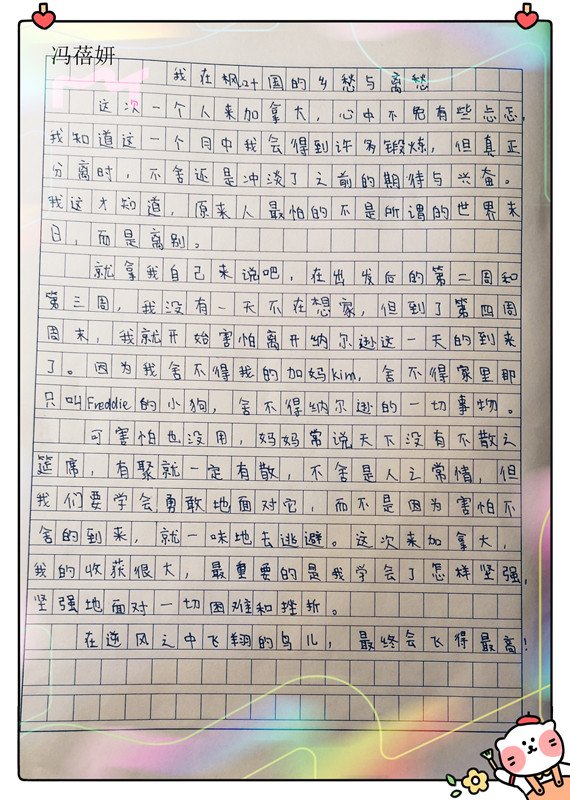 冯蓓妍
我在枫叶国的乡愁与离愁
这次一个人来加拿大，心中不免有些忐忑，
我知道这一个月中我会得到许多锻炼，但真正
分离时，不舍还是冲淡了之前的期待与兴奋。
我这才知道，原来人最怕的不是所谓的世界末
日，而是离别。
就拿我自己来说吧，在出发后的第二周和
第三周，我没有一天不在想家，但到了第四周
周末，我就开始害怕离开纳尔逊这一天的到来
了。因为我舍不得我的加妈kim，舍不得家里那
只叫Freddie的小狗，舍不得纳尔逊的一切事物。
可害怕也没用，妈妈常说天下没有不散之
筵席，有聚就一定有散，不舍是人之常情，但
我们要学会勇敢地面对它，而不是因为害怕不
舍的到来，就一味地去逃避。这次来加拿大，
我的收获很大，最重要的是我学会了怎样坚强，
坚强地面对一切困难和挫折。
在逆风之中飞翔的鸟儿，最终会飞得最高！